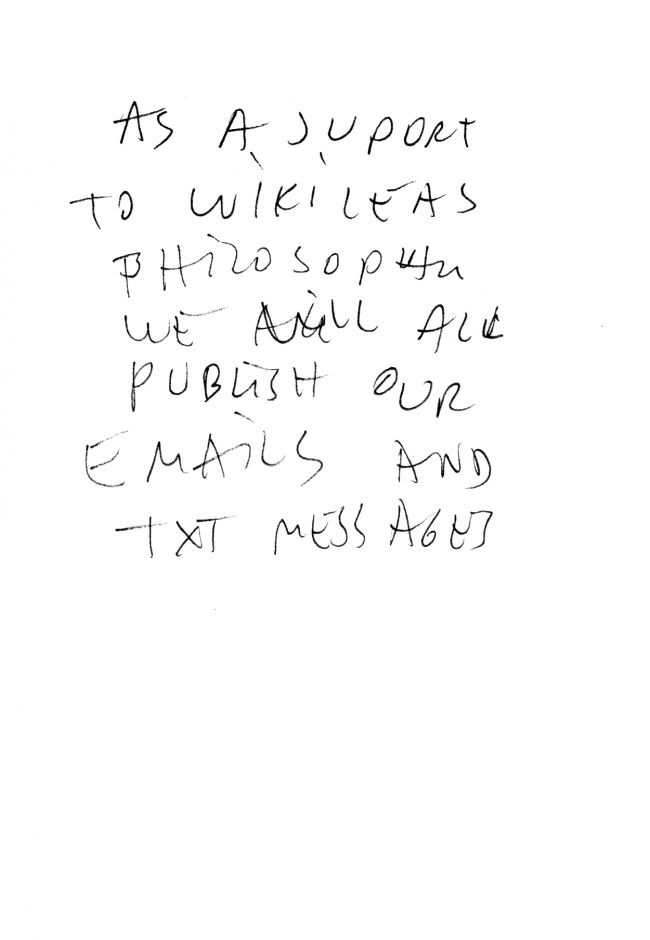 AS A SUPORT
TO WIKILEAS
PHILOSOPHY
WE WILL ALL
PUBLISH OUR
EMAILS AND
TXT MESSAGES